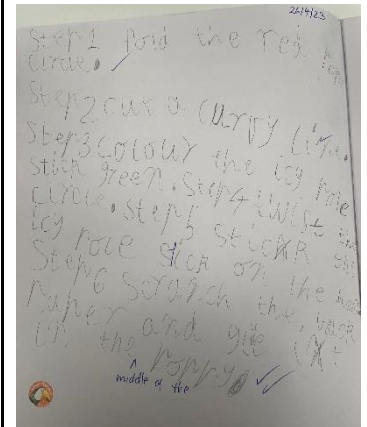 26/9/23
Step1 fold the red
circle.
Step2 cut a curvy line.
Step3 colour the icy pole
stick green. Step4 twist the
circle. Step5 stick the
icy pole stick on the
Step6 scranch the black
paper and glue it
in the middle of the poppy